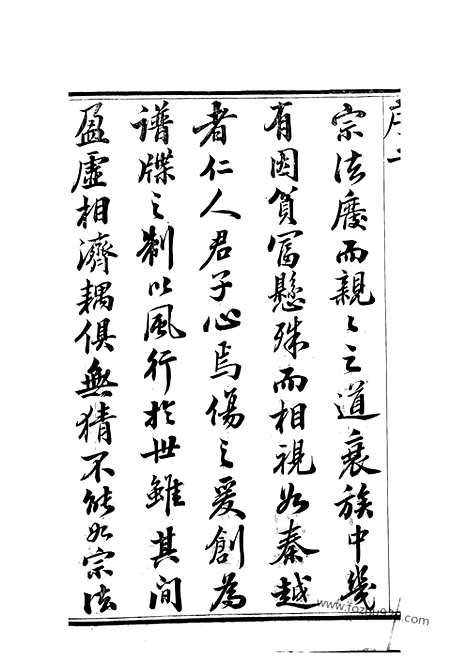 序一
宗法廢而親々之道衰族中幾
有因貧富懸殊而相視如秦越
者仁人君子心焉傷之爰創為
譜牒之制以風行於世雖其間
盈虛相濟耦俱無猜不能如宗法
www.fozhu920.com